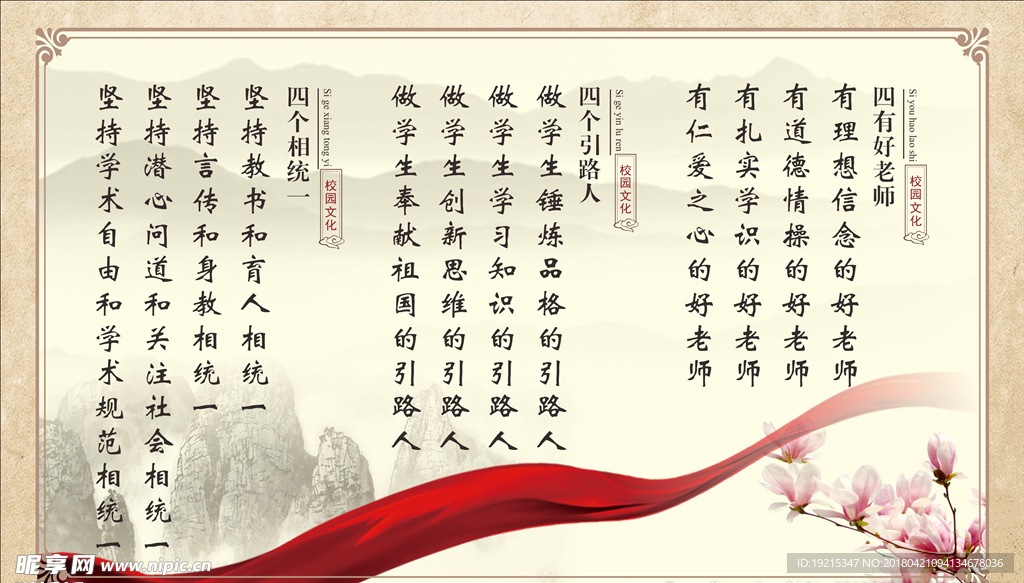 Si you hao lao shi
校园文化
四有好老师
有理想信念的好老师
有道德情操的好老师
有扎实学识的好老师
有仁爱之心的好老师
Si ge yin lu ren
校园文化
四个引路人
做学生锤炼品格的引路人
做学生学习知识的引路人
做学生创新思维的引路人
做学生奉献祖国的引路人
Si ge xiang tong yi
校园文化
四个相统一
坚持教书和育人相统一
坚持言传和身教相统一
坚持潜心问道和关注社会相统一
坚持学术自由和学术规范相统一
昵享网 www.nipic.cn
ID:19215347 NO:20180421094134678036